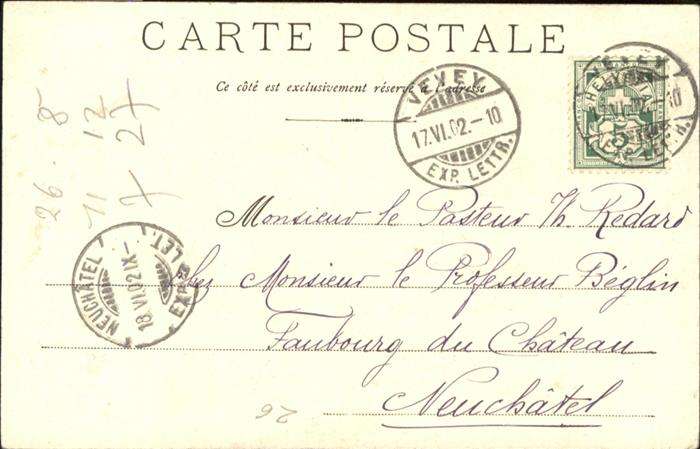 CARTE POSTALE
Ce côté est exclusivement réservé à l'adresse
VEVEY
17.VI.02.-10
EXP. LETTR.
HELVETIA
5
26. 8
11 12
7 27
NEUCHÂTEL
18.VI.02 IX-
EXP. LET.
Monsieur le Pasteur Th. Redard
chez Monsieur le Professeur Béglin
Faubourg du Château
Neuchâtel
26